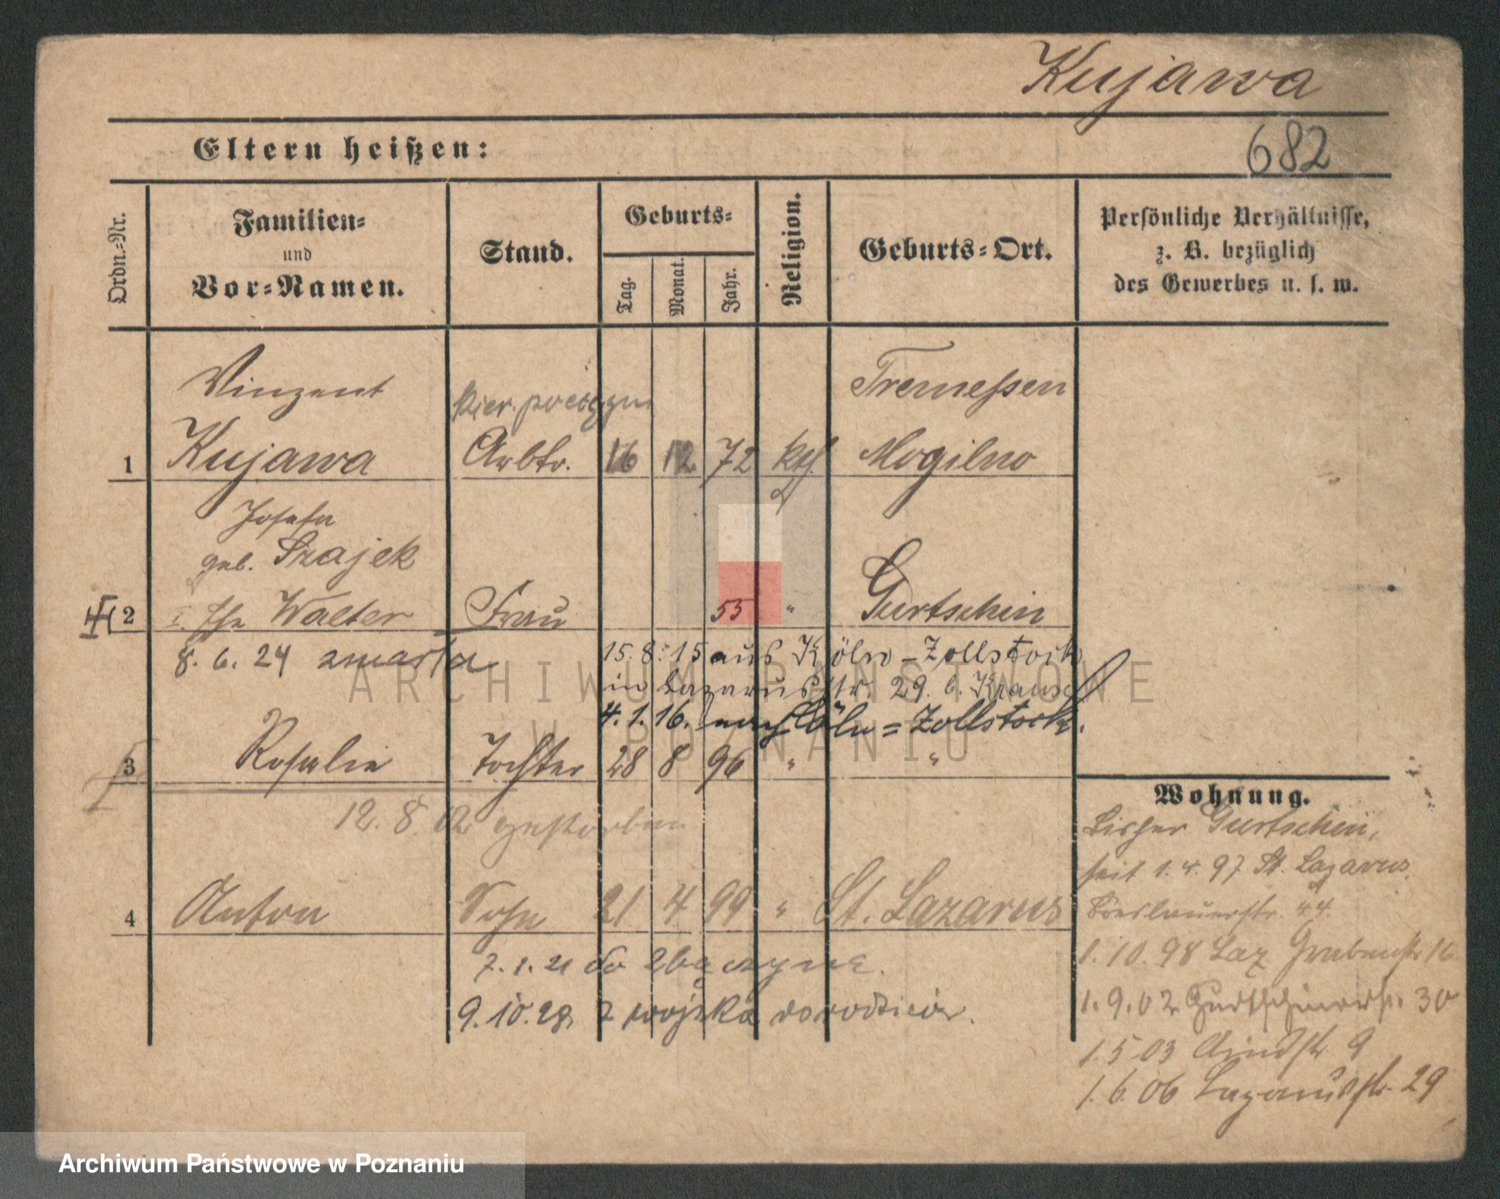 Kujawa
Eltern heißen:
682
Ordn.-Nr.
Familien-
und
Vor-Namen.
Stand.
Geburts-
Tag.
Monat.
Jahr.
Religion.
Geburts-Ort.
Persönliche Verhältnisse,
z. B. bezüglich
des Gewerbes u. s. w.
Vinzent
Tremessen
1 Kujawa Arbtr. 16 12 72 kth Mogilno
Josefa
geb. Szajek
2 Walter Frau 55 " Gurtschin
8. 6. 24 zmarła
15. 8. 15 aus Köln-Zollstock
in Lazarusstr. 29. b.
4. 1. 16. nach Cöln=Zollstock.
3 Rosalie Tochter 28 8 96 " "
12. 8. 02 gestorben
4 Anton Sohn 21 4 99 " St. Lazarus
7. 1. 21 do Zbąszynia.
9. 10. 28 z wojska do rodziców.
Wohnung.
Bisher Gurtschin,
seit 1. 4. 97 St. Lazarus
Breslauerstr. 44.
1. 10. 98 Laz Grabenstr 16
1. 9. 02 Gurtschinerstr. 30
1. 5 03 str. 9
1. 6. 06 Lazarusstr. 29
ARCHIWUM PAŃSTWOWE
W POZNANIU
Archiwum Państwowe w Poznaniu